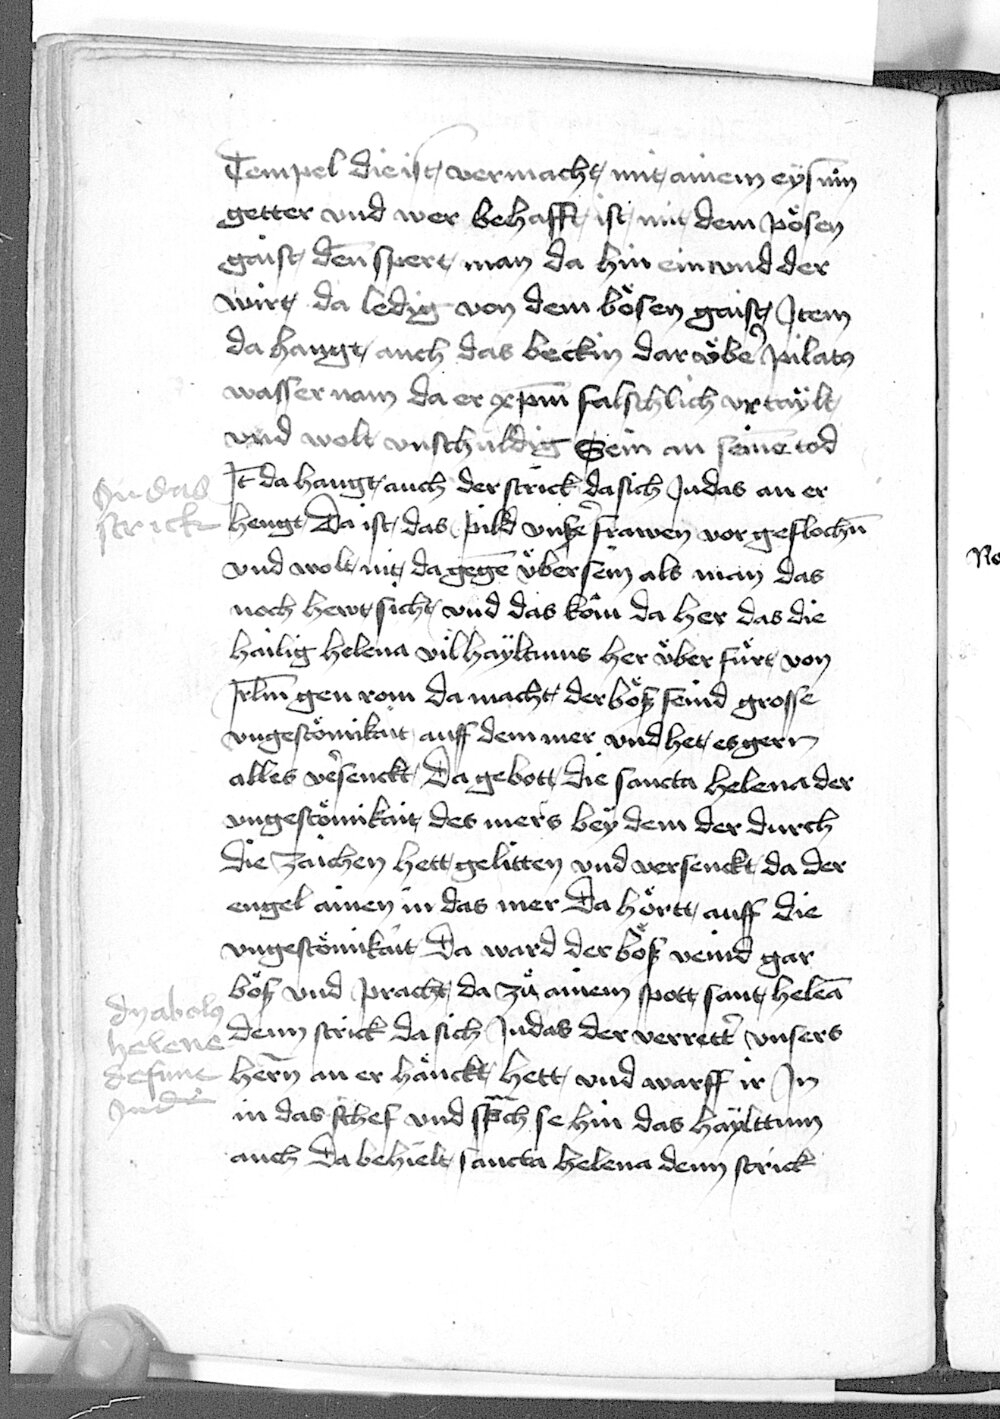 Tempel die ist vermacht mit ainem eysnin
getter vnd wer behafft ist mit dem pösen
gaist den̄ spert man da hin ein vnd der
wirt da ledig von dem bösen gaist Jtem
da hangt auch das beckin dar vber pilatꝰ
wasser nam da er xp̄m falschlich vrtaÿlt
vnd wolt vnschuldig sein an seinē tod
Jt̄ da hangt auch der strick da sich Judas an er
hengt Da ist das pild vnßer frawen vor geflochn̄
vnd wolt nit da gegē vber sein als man das
noch hewt sicht vnd das kom da her das die
hailig helena vil haÿltums her vber fürt von
Jrlm̄ gen rom da macht der böß feind grosse
vngestömikait auff dem mer vnd het es gern
alles versenckt Da gebott die sancta helena der
vngestömikait des mers beÿ dem der durch
die zaichen hett gelitten vnd versenckt da der
engel ainen in das mer Da hörtt auff die
vngestömikait Da ward der böß veind gar
böß vnd pracht da zů ainem spott sant heleā
denn strick da sich Judas der verretter vnsers
hern̄ an er hänckt hett vnd warff ir Jn
in das schef vnd sp̄ch se hin das haÿlttum
auch Da behielt sancta helena denn strick
Judas
strick
dyabolꝰ
helene
Ro